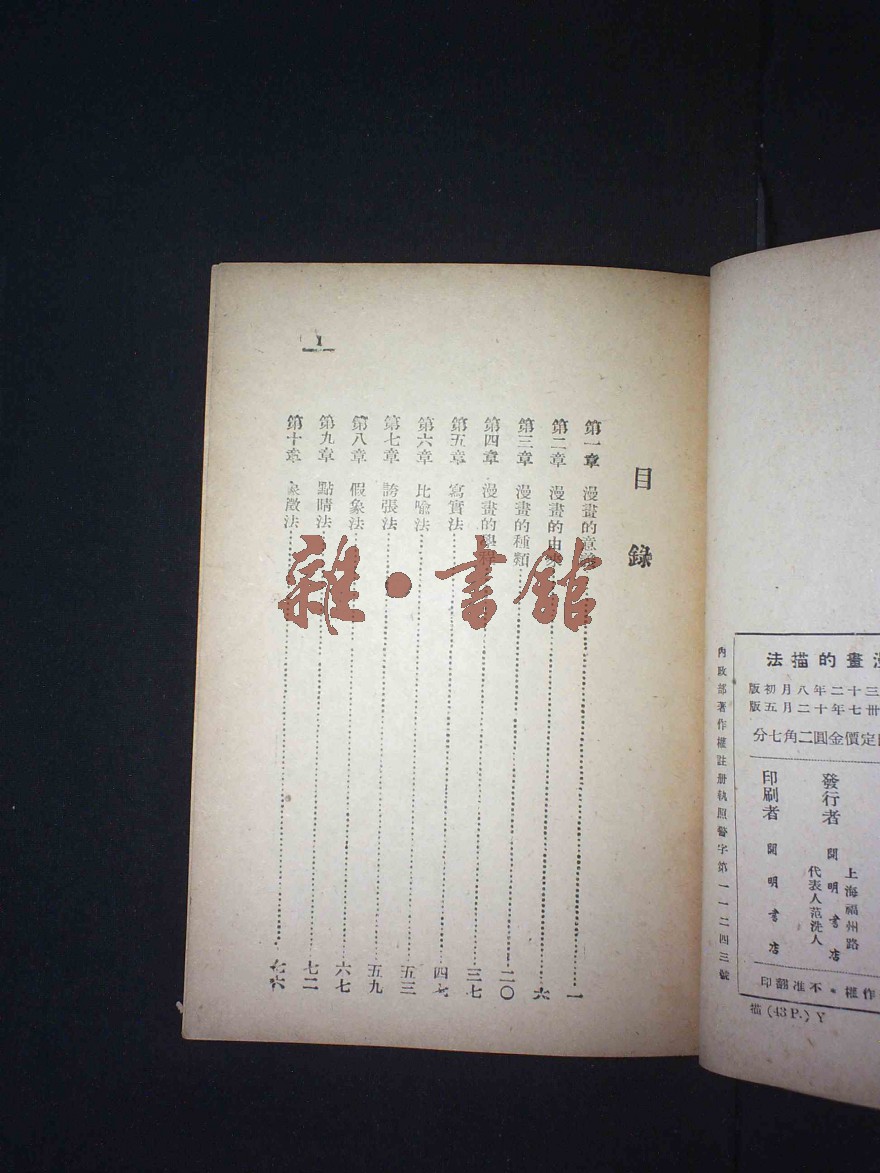 目錄
第一章 漫畫的意 一
第二章 漫畫的由來 六
第三章 漫畫的種類 二〇
第四章 漫畫的學 三七
第五章 寫實法 四七
第六章 比喻法 五三
第七章 誇張法 五九
第八章 假象法 六七
第九章 點睛法 七二
第十章 象徵法 七六
1
雜·書館
漫畫的描法
三十二年八月初版
卅七年十二月五版
定價金圓二角七分
發行者
上海福州路
開明書店
代表人范洗人
印刷者 開明書店
作權·不准翻印
內政部著作權註册執照警字第一一二四三號
描(43 P.) Y